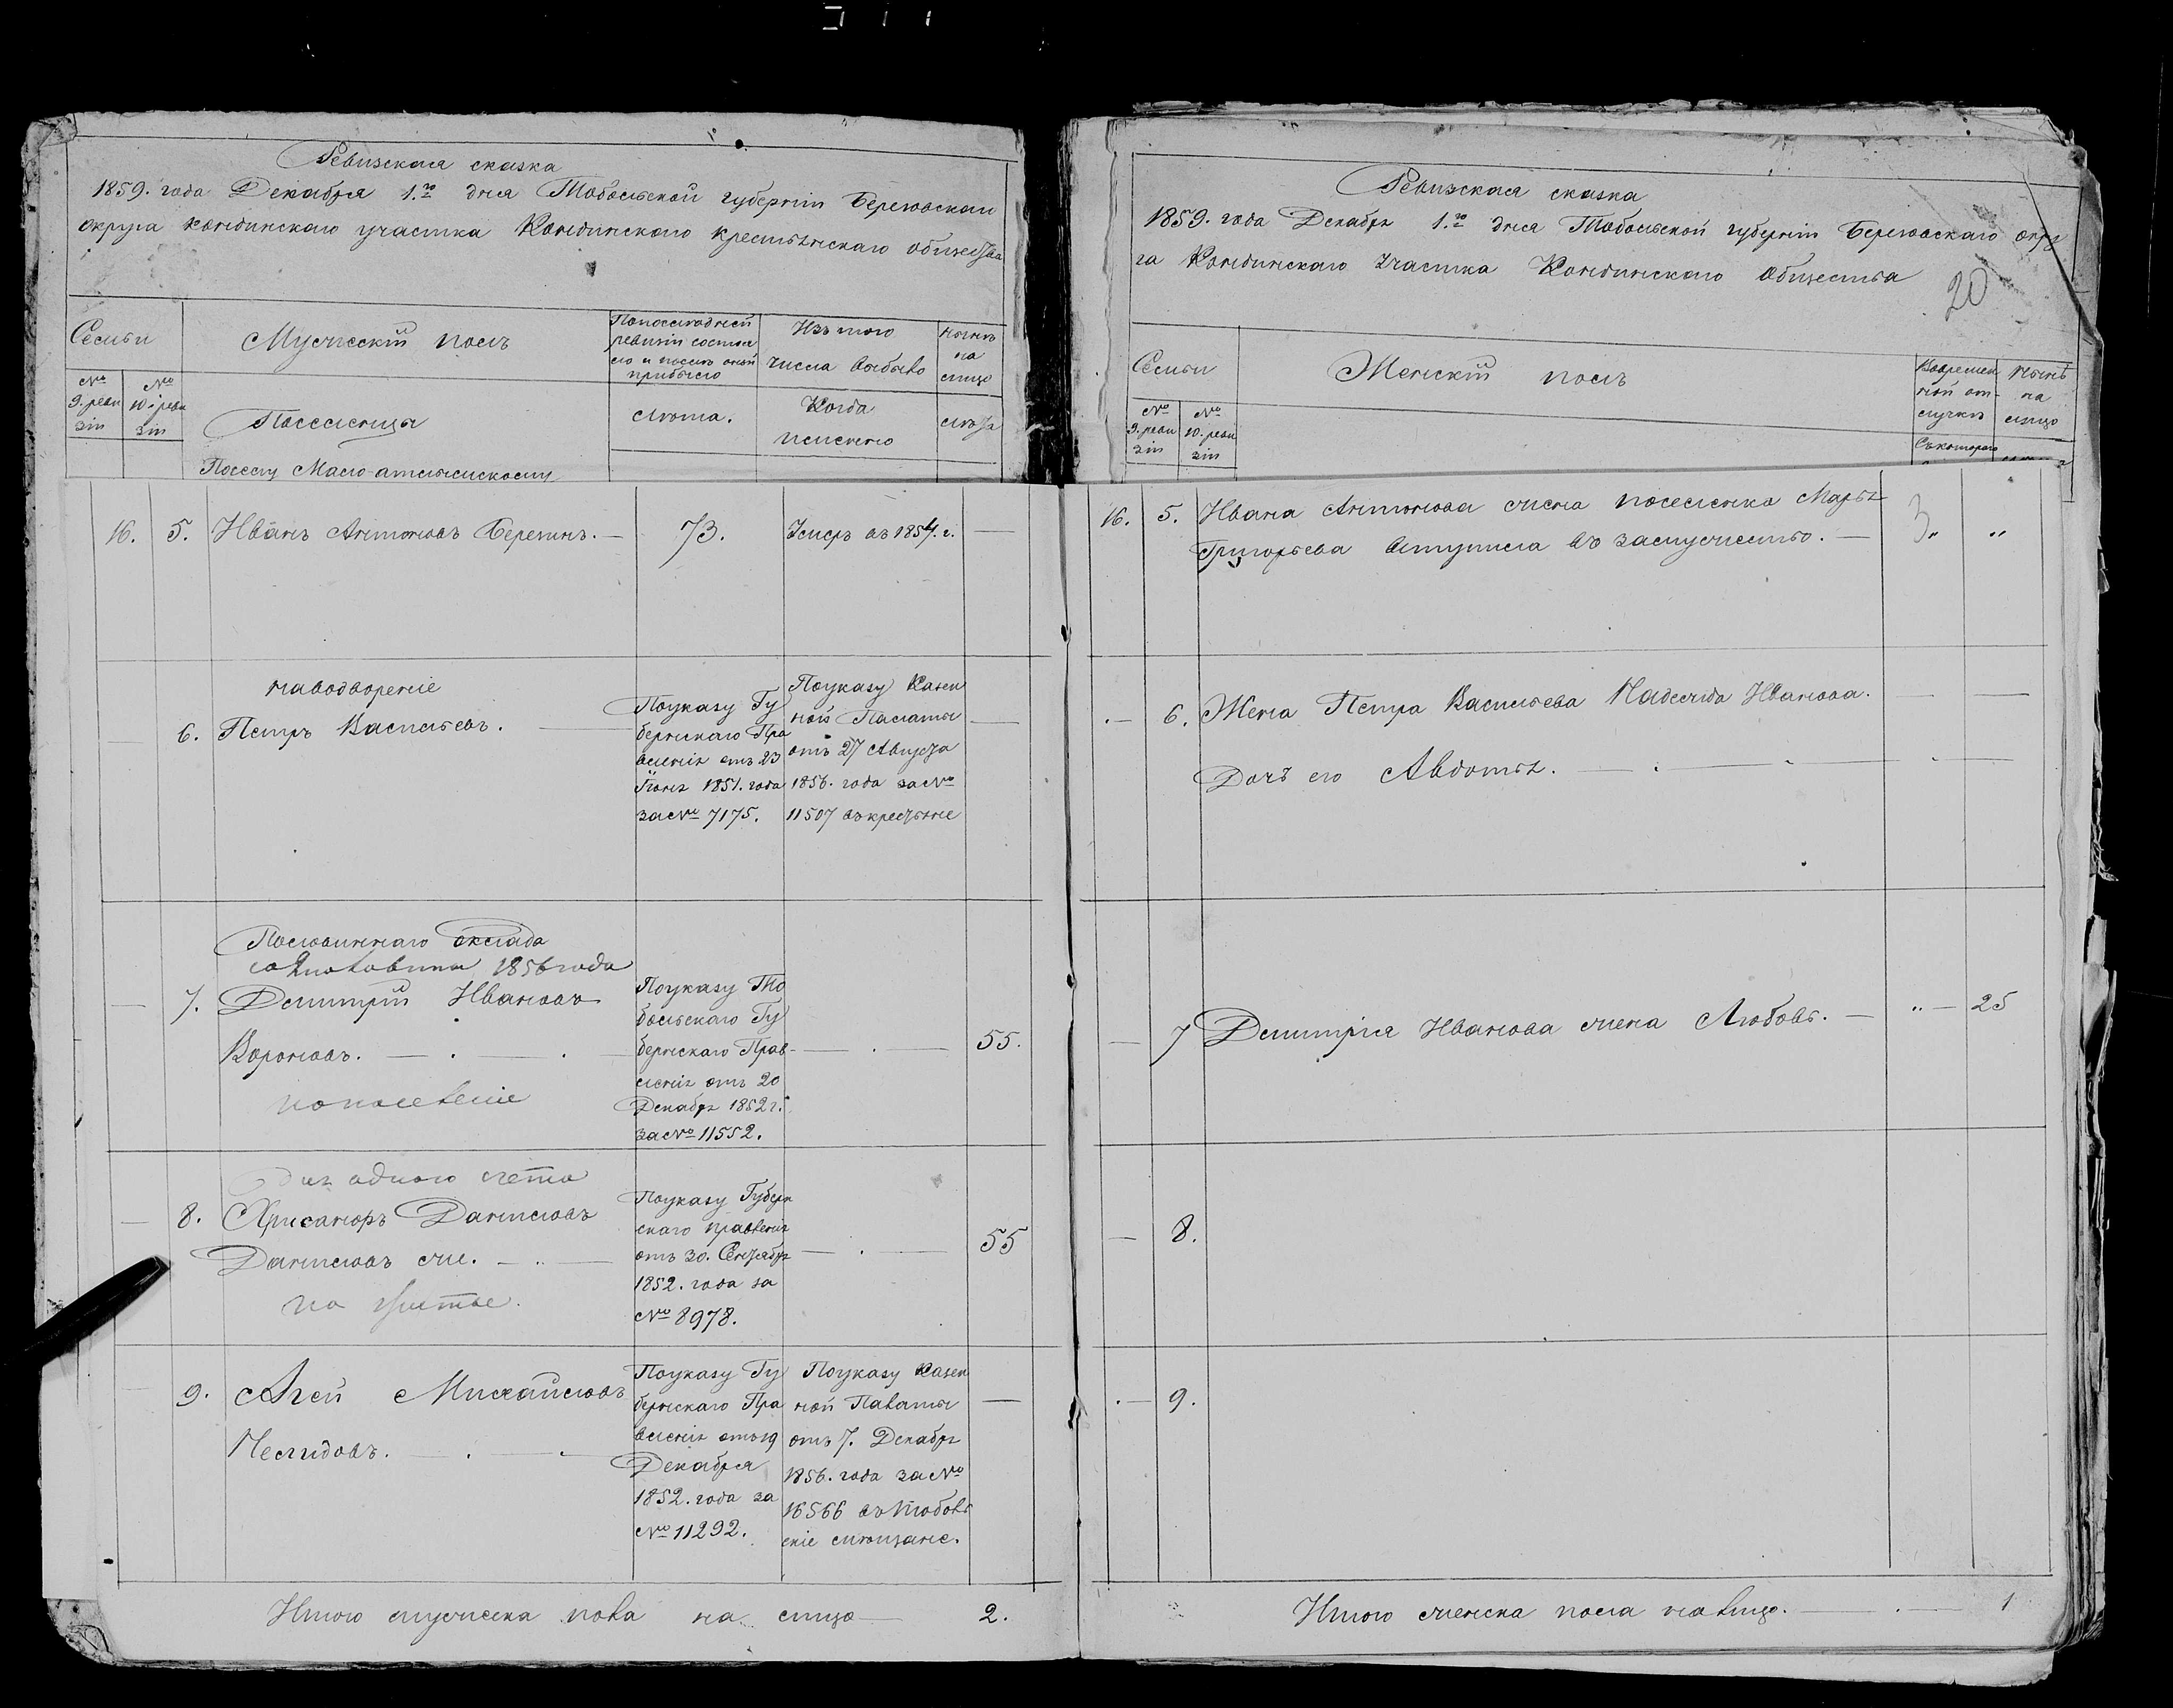 Ревизская сказка
1859. года Декабря 1.го дня Тобольской губернiи Березовскаго
округа Кондинскаго участка Кондинскаго крестьянскаго общества
Семьи
Мужескiй полъ
По последней
ревизiи состоя
ло и после оной
прибыло
Изъ того
числа выбыло
ныне
на
лицо
№
9. реви
зiи
№
10. реви
зiи
Поселенцы
лета.
Когда
именно
лета
Поселу Мало-атлымскому
16. 5. Иванъ Антоновъ Березинъ. — 73. Умеръ въ 1854. г. —
на водворенiе
— 6. Петръ Васильевъ. —
По указу Гу
бернскаго Пра
вленiя отъ 23
Iюня 1851. года
за № 7175.
По указу Казен
ной Палаты
отъ 27 Августа
1856. года за №
11507 въ крестьяне
—
Половиннаго оклада
со 2 половины 1856 года
— 7. Дмитрiй Ивановъ
Вороновъ. —
на поселенiе
По указу То
больскаго Гу
бернскаго Прав-
ленiя отъ 20
Декабря 1852 г.
за № 11552.
— 55.
для одного счета
— 8. Хрисанфъ Даниловъ
Даниловъ же. —
на житье.
По указу Губерн
скаго правленiя
отъ 30. Сентября
1852. года за
№ 8978.
— 55
9. Агей Михайловъ
Нелидовъ. —
По указу Гу
бернскаго Пра
вленiя отъ 19
Декабря
1852. года за
№ 11292.
По указу Казен
ной Палаты
отъ 7. Декабря
1856. года за №
16566 въ Тоболь
скiе мещане.
—
Итого мужеска пола на лицо — 2.
Ревизская сказка
1859. года Декабря 1.го дня Тобольской губернiи Березовскаго окру
га Кондинскаго участка Кондинскаго Общества
20
Семьи
Женскiй полъ
Во времен
ной от-
лучке
ныне
на
лицо
№
9. реви
зiи
№
10. реви
зiи
Съ котораго
16. 5. Ивана Антонова жена поселенка Марья
Григорьева вступила въ замужество. — „ „
— 6. Жена Петра Васильева Надежда Иванова. — —
Дочь его Авдотья. — — —
— 7 Дмитрiя Иванова жена Любовь. — „ — 25
— 8.
— 9.
Итого женска пола на лицо. — 1